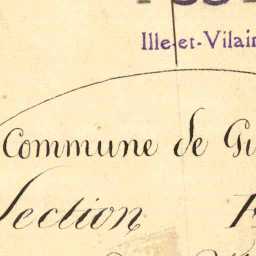 Ille-et-Vilain
Commune de Gu
Section